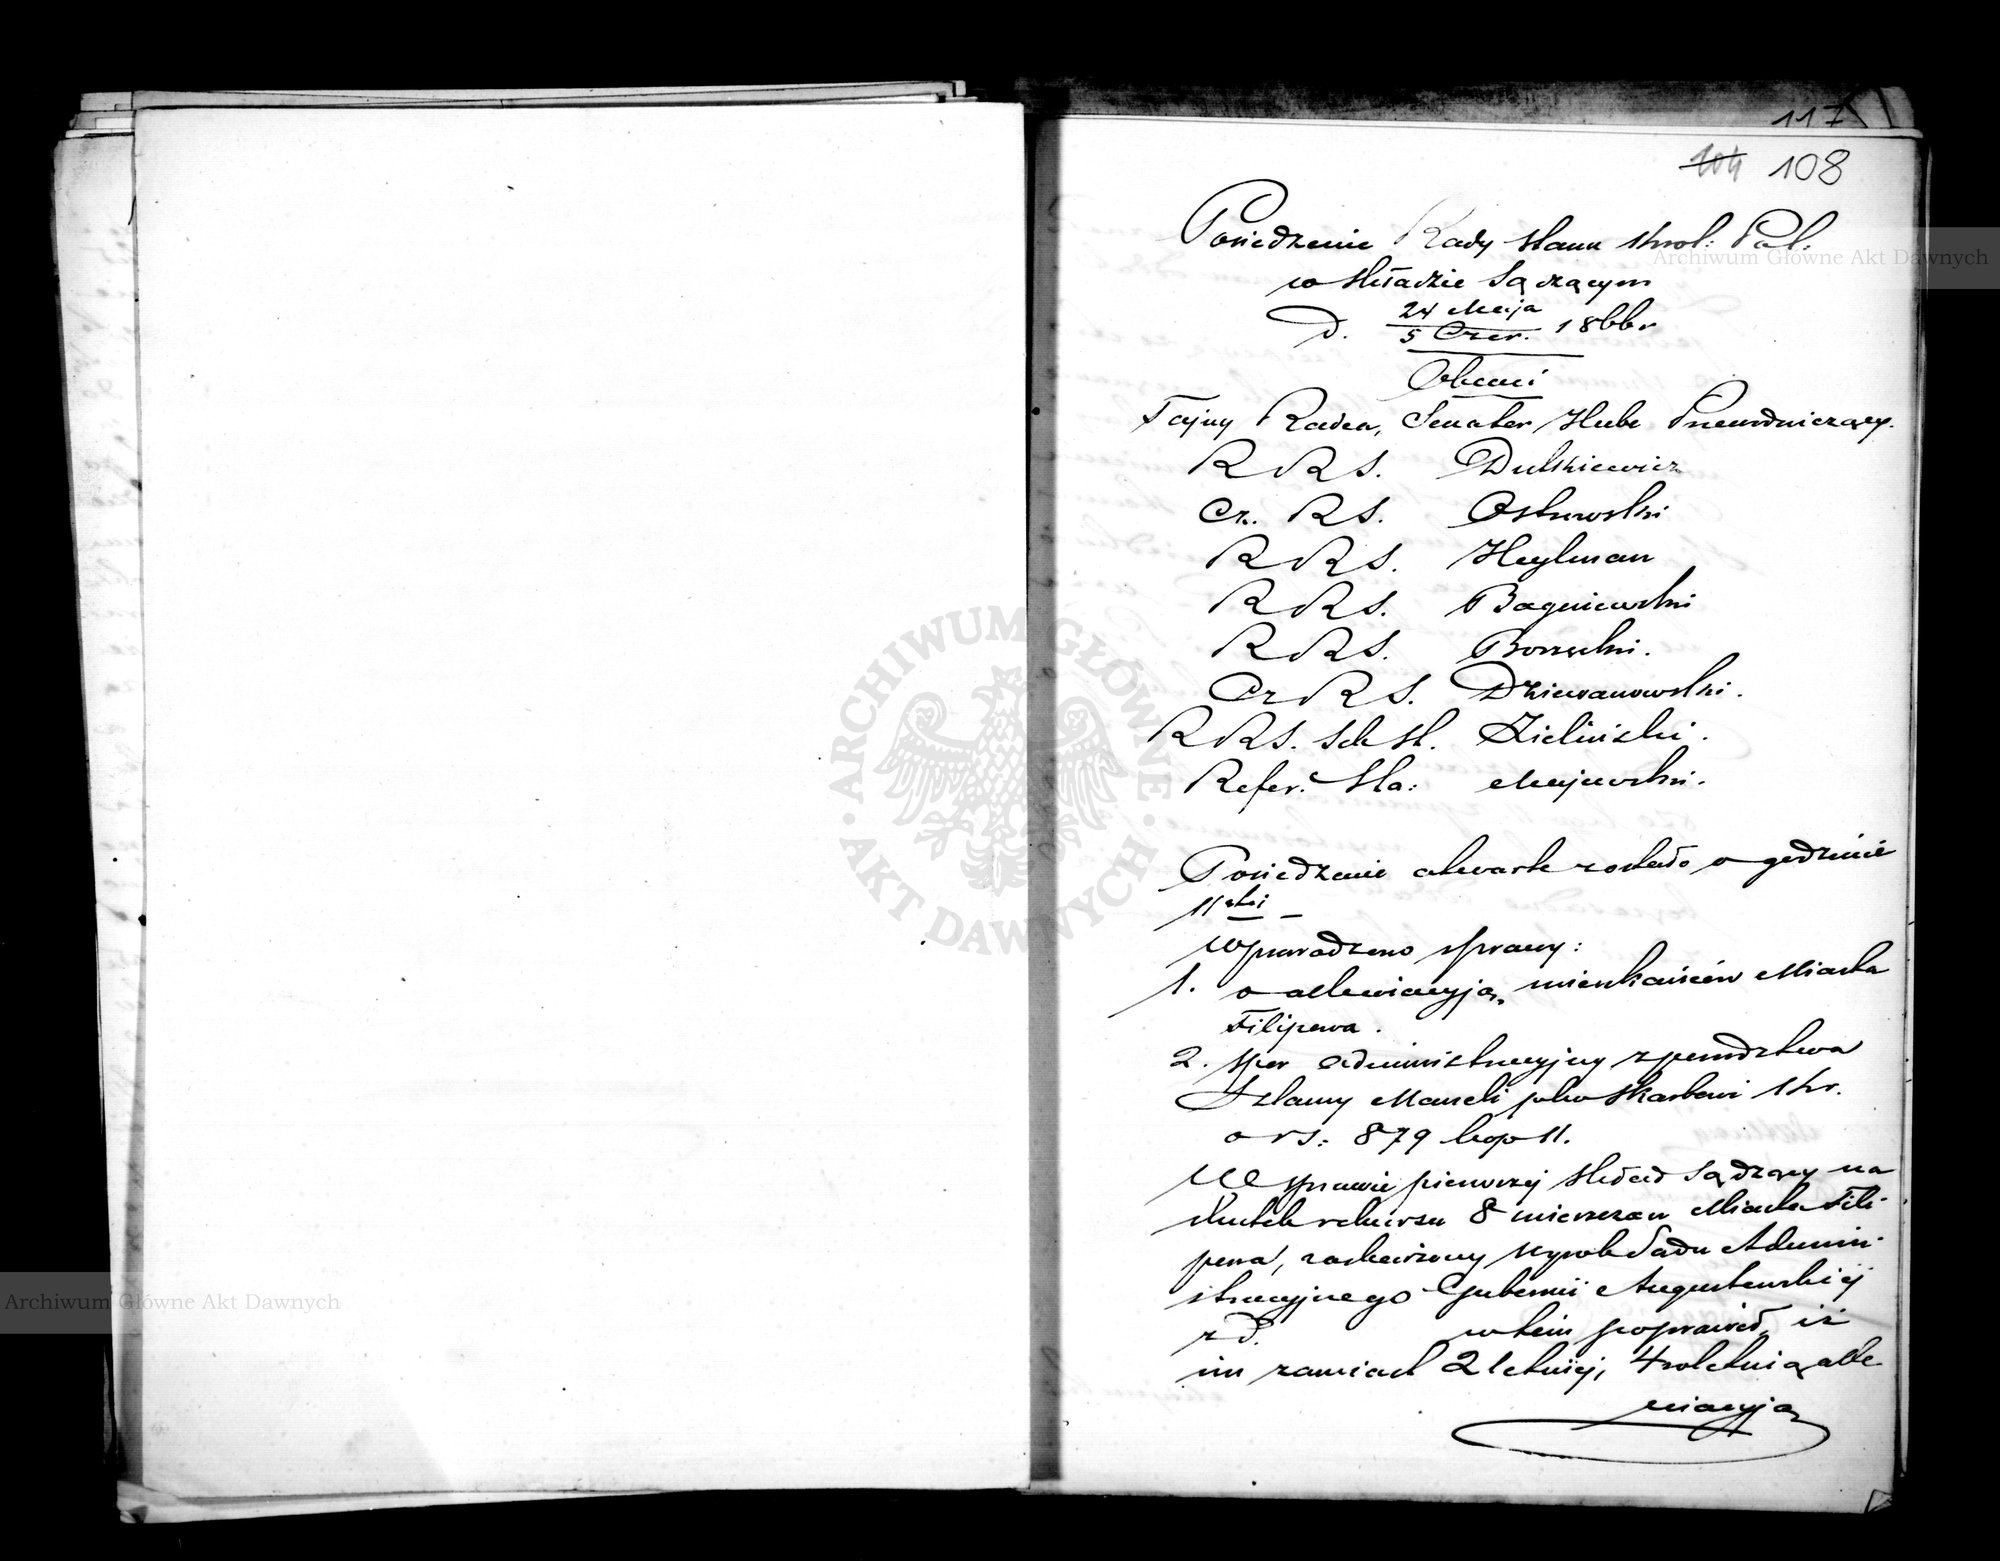 117
104 108
Posiedzenie Rady Stanu Król: Pol:
w składzie Sądzącym
d. 24 Maja / 5 Czer. 1866 r
Obecni
Tajny Radca, Senator Hube Prezydujący.
R R S. Dutkiewicz
Cz. R S. Ostrowski
R R S. Heylman
R R S. Bagniewski
R R S. Borzęcki.
Cz R S. Dziewanowski.
R R S. Sek St. Zieliński.
Refer. Sta: Majewski.
Posiedzenie otwarte zostało o godzinie
11stéj —
Wprowadzono sprawy:
1. o allewiacyją mieszkańców Miasta
Filipowa.
2. spór administracyjny z powództwa
Szlamy plko Skarbowi Kr.
o rs: 879 kop 11.
W sprawie pierwszej skład Sądzący na
skutek rekursu 8 mieszczan Miasta Fili-
powa, zaskarżony wyrok Sądu Admini-
stracyjnego Gubernii Augustowskiéj
z d. w tém poprawił, iż
im zamiast 2 letniéj, 4roletnią alle
wiacyją
ARCHIWUM GŁÓWNE AKT DAWNYCH
Archiwum Główne Akt Dawnych
Archiwum Główne Akt Dawnych